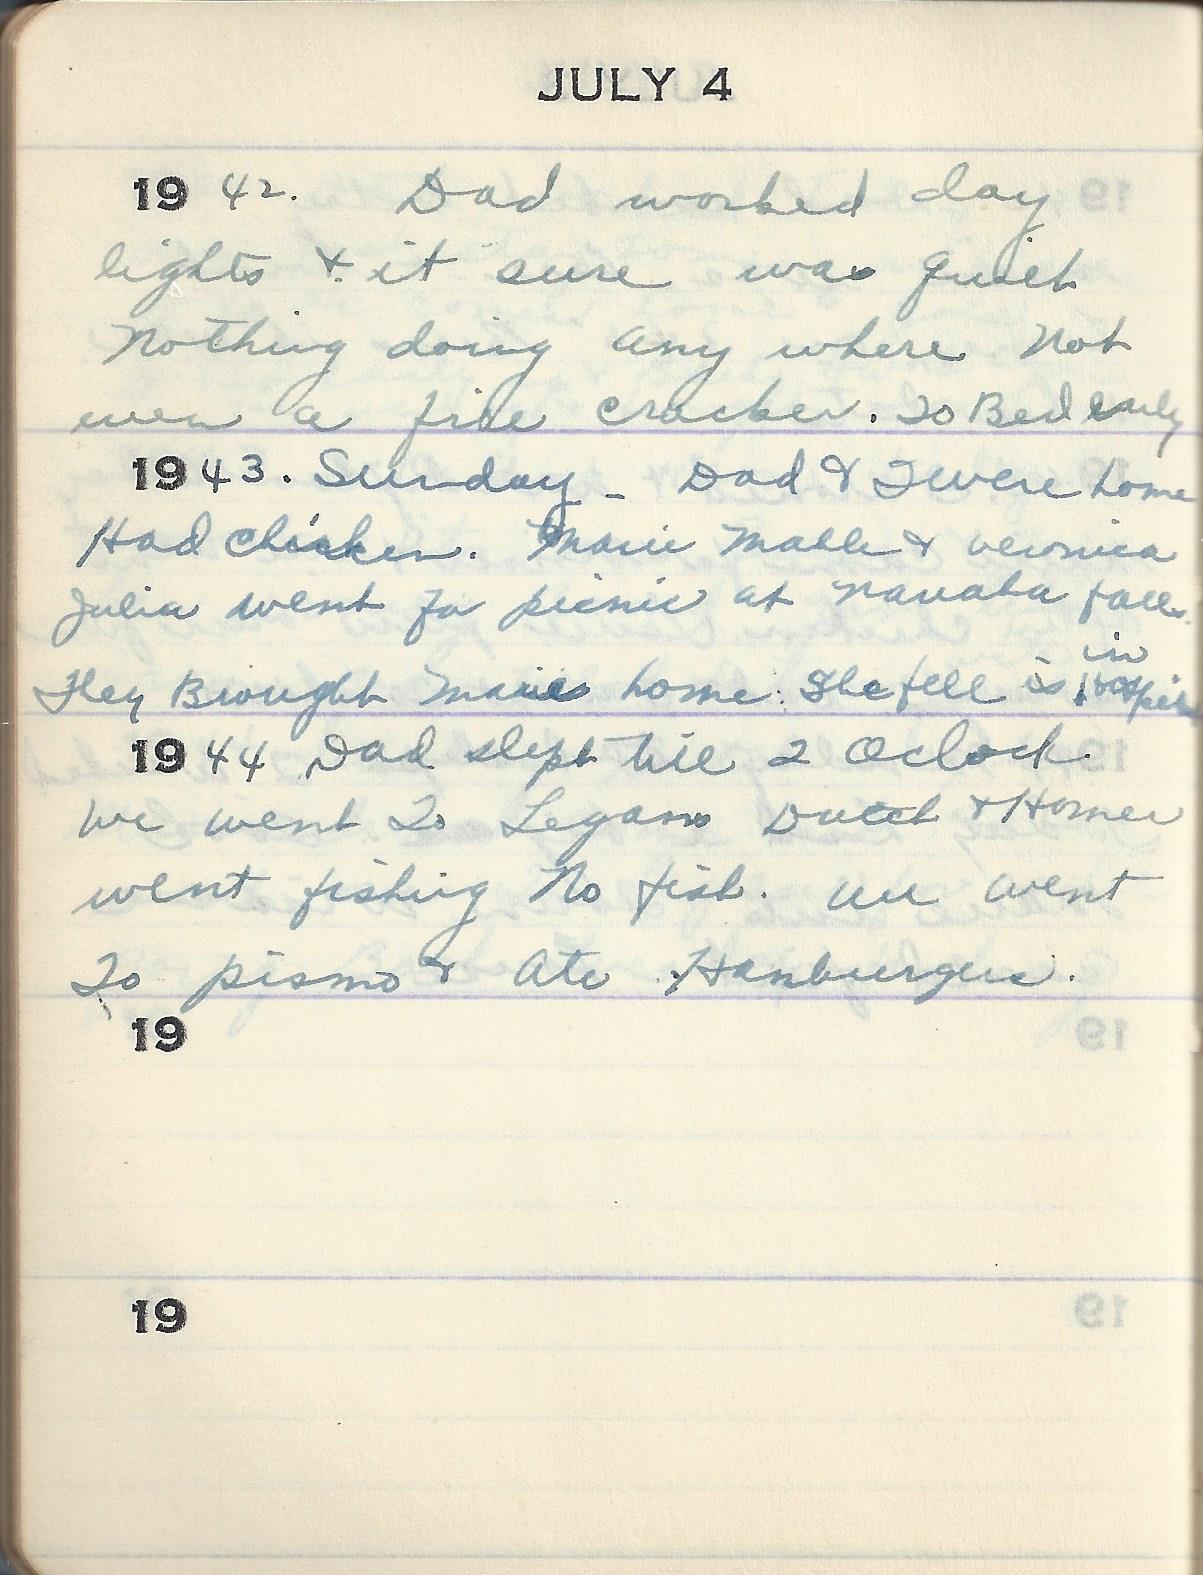 JULY 4
19 42. Dad worked day
lights & it sure was quiet
Nothing doing any where Not
even a fire cracker. To Bed early
1943. Sunday - Dad & I were home
Had chicken. Marie Mable & veronica
Julia went for picnic at falls.
in
They Brought Marie home. She fell is Hospit
1944 Dad slept till 2 Oclock.
We went To Legans Dutch & Homer
went fishing No fish. we went
To pismo & Ate Hamburgers.
19
19